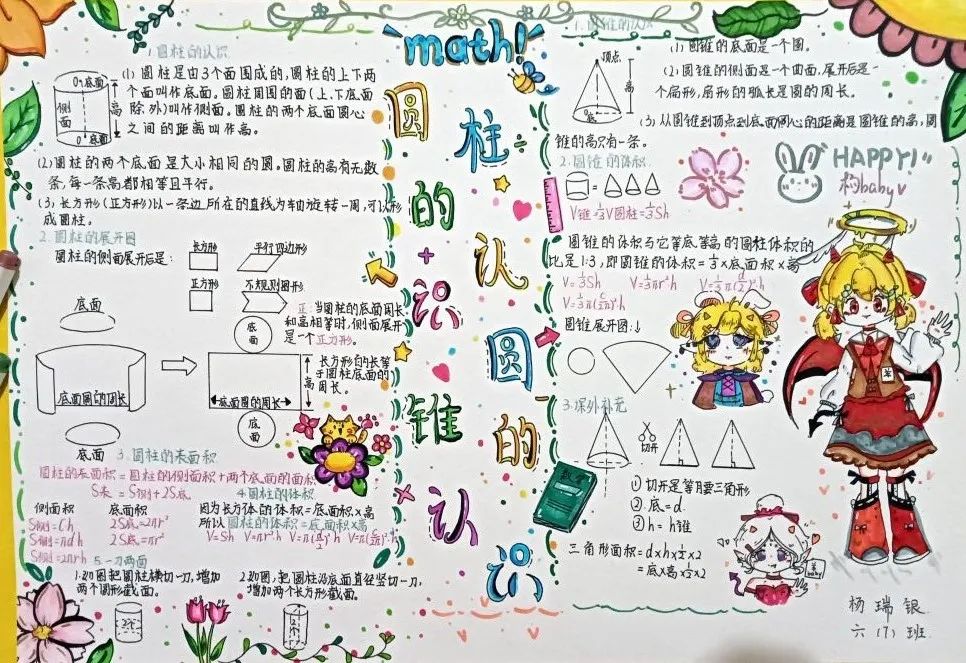 math!
圆柱的认识
圆锥的认识
1.圆柱的认识
(1)圆柱是由3个面围成的,圆柱的上下两
个面叫作底面。圆柱周围的面(上、下底面
除外)叫作侧面。圆柱的两个底面圆心
之间的距离叫作高。
底面
侧面
高
底面
(2)圆柱的两个底面是大小相同的圆。圆柱的高有无数
条,每一条高都相等且平行。
(3)长方形(正方形)以一条边所在的直线为轴旋转一周,可以形
成圆柱。
2.圆柱的展开图
圆柱的侧面展开后是:
长方形
平行四边形
正方形
不规则图形
正:当圆柱的底面周长
和高相等时,侧面展开
是一个正方形。
底面
底面圆的周长
底面
底面
底面圆的周长
高
底面
长方形的长等
于圆柱底面的
周长。
3.圆柱的表面积
圆柱的表面积=圆柱的侧面积+两个底面的面积
S表=S侧+2S底
侧面积
S侧=Ch
S侧=πdh
S侧=2πrh
底面积
2S底=2πr²
2S底=πr²
4.圆柱的体积
因为长方体的体积=底面积×高
所以圆柱的体积=底面积×高
V=Sh V=πr²h V=π(d/2)²h V=π(C/2π)²h
5.一刀两面
1.如图把圆柱横切一刀,增加
两个圆形截面。
2.如图,把圆柱沿底面直径竖切一刀,
增加两个长方形截面。
1.圆锥的认识
顶点
高
底
(1)圆锥的底面是一个圆。
(2)圆锥的侧面是一个曲面,展开后是一
个扇形,扇形的弧长是圆的周长。
(3)从圆锥到顶点到底面圆心的距离是圆锥的高,圆
锥的高只有一条。
2.圆锥的体积
V锥=1/3V圆柱=1/3Sh
HAPPY!
baby
圆锥的体积与它等底等高的圆柱体积的
比是1:3,即圆锥的体积=1/3×底面积×高
V=1/3Sh V=1/3πr²h V=1/3π(d/2)²h
V=1/3π(C/2π)²h
圆锥展开图:↓
3.课外补充
切开
h
d
数学
①切开是等月要三角形
②底=d
③h=h锥
三角形面积=d×h×1/2×2
=底×高×1/2×2
baby
杨瑞银
六(7)班